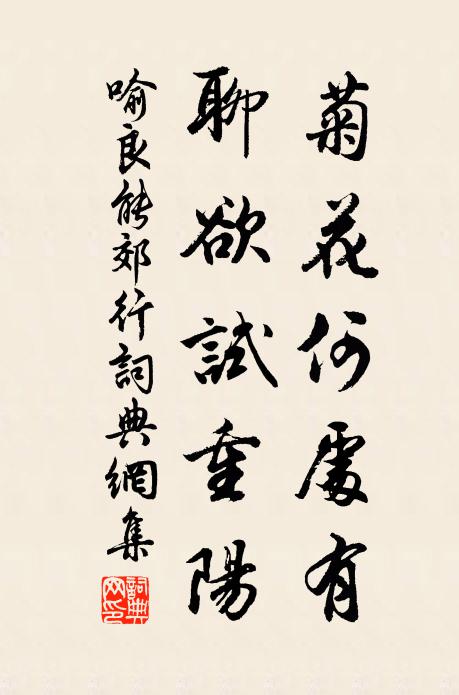 菊花何處有
聊欲試重陽
喻良能郊行詞典網集
詞典网印